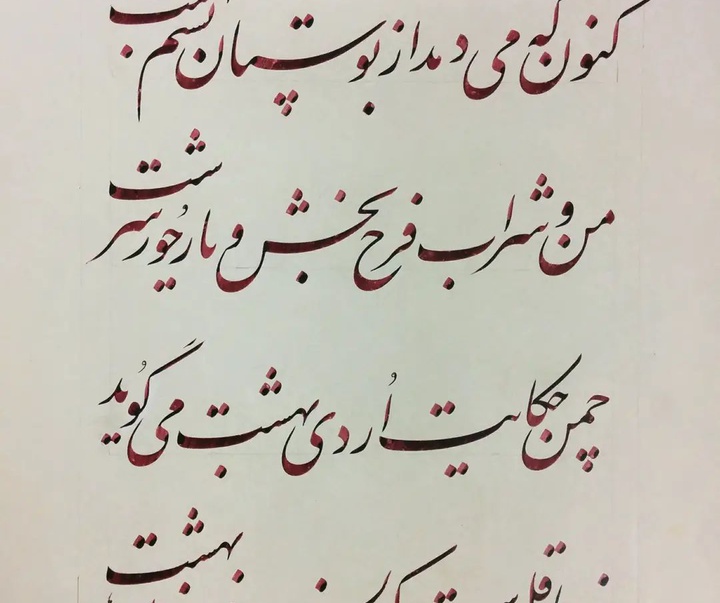 کنون که می دمد از بوستان نسیم
من و شراب فرح بخش و یار حور سرشت
چمن حکایت اُردی بهشت می گُوید
بهشت